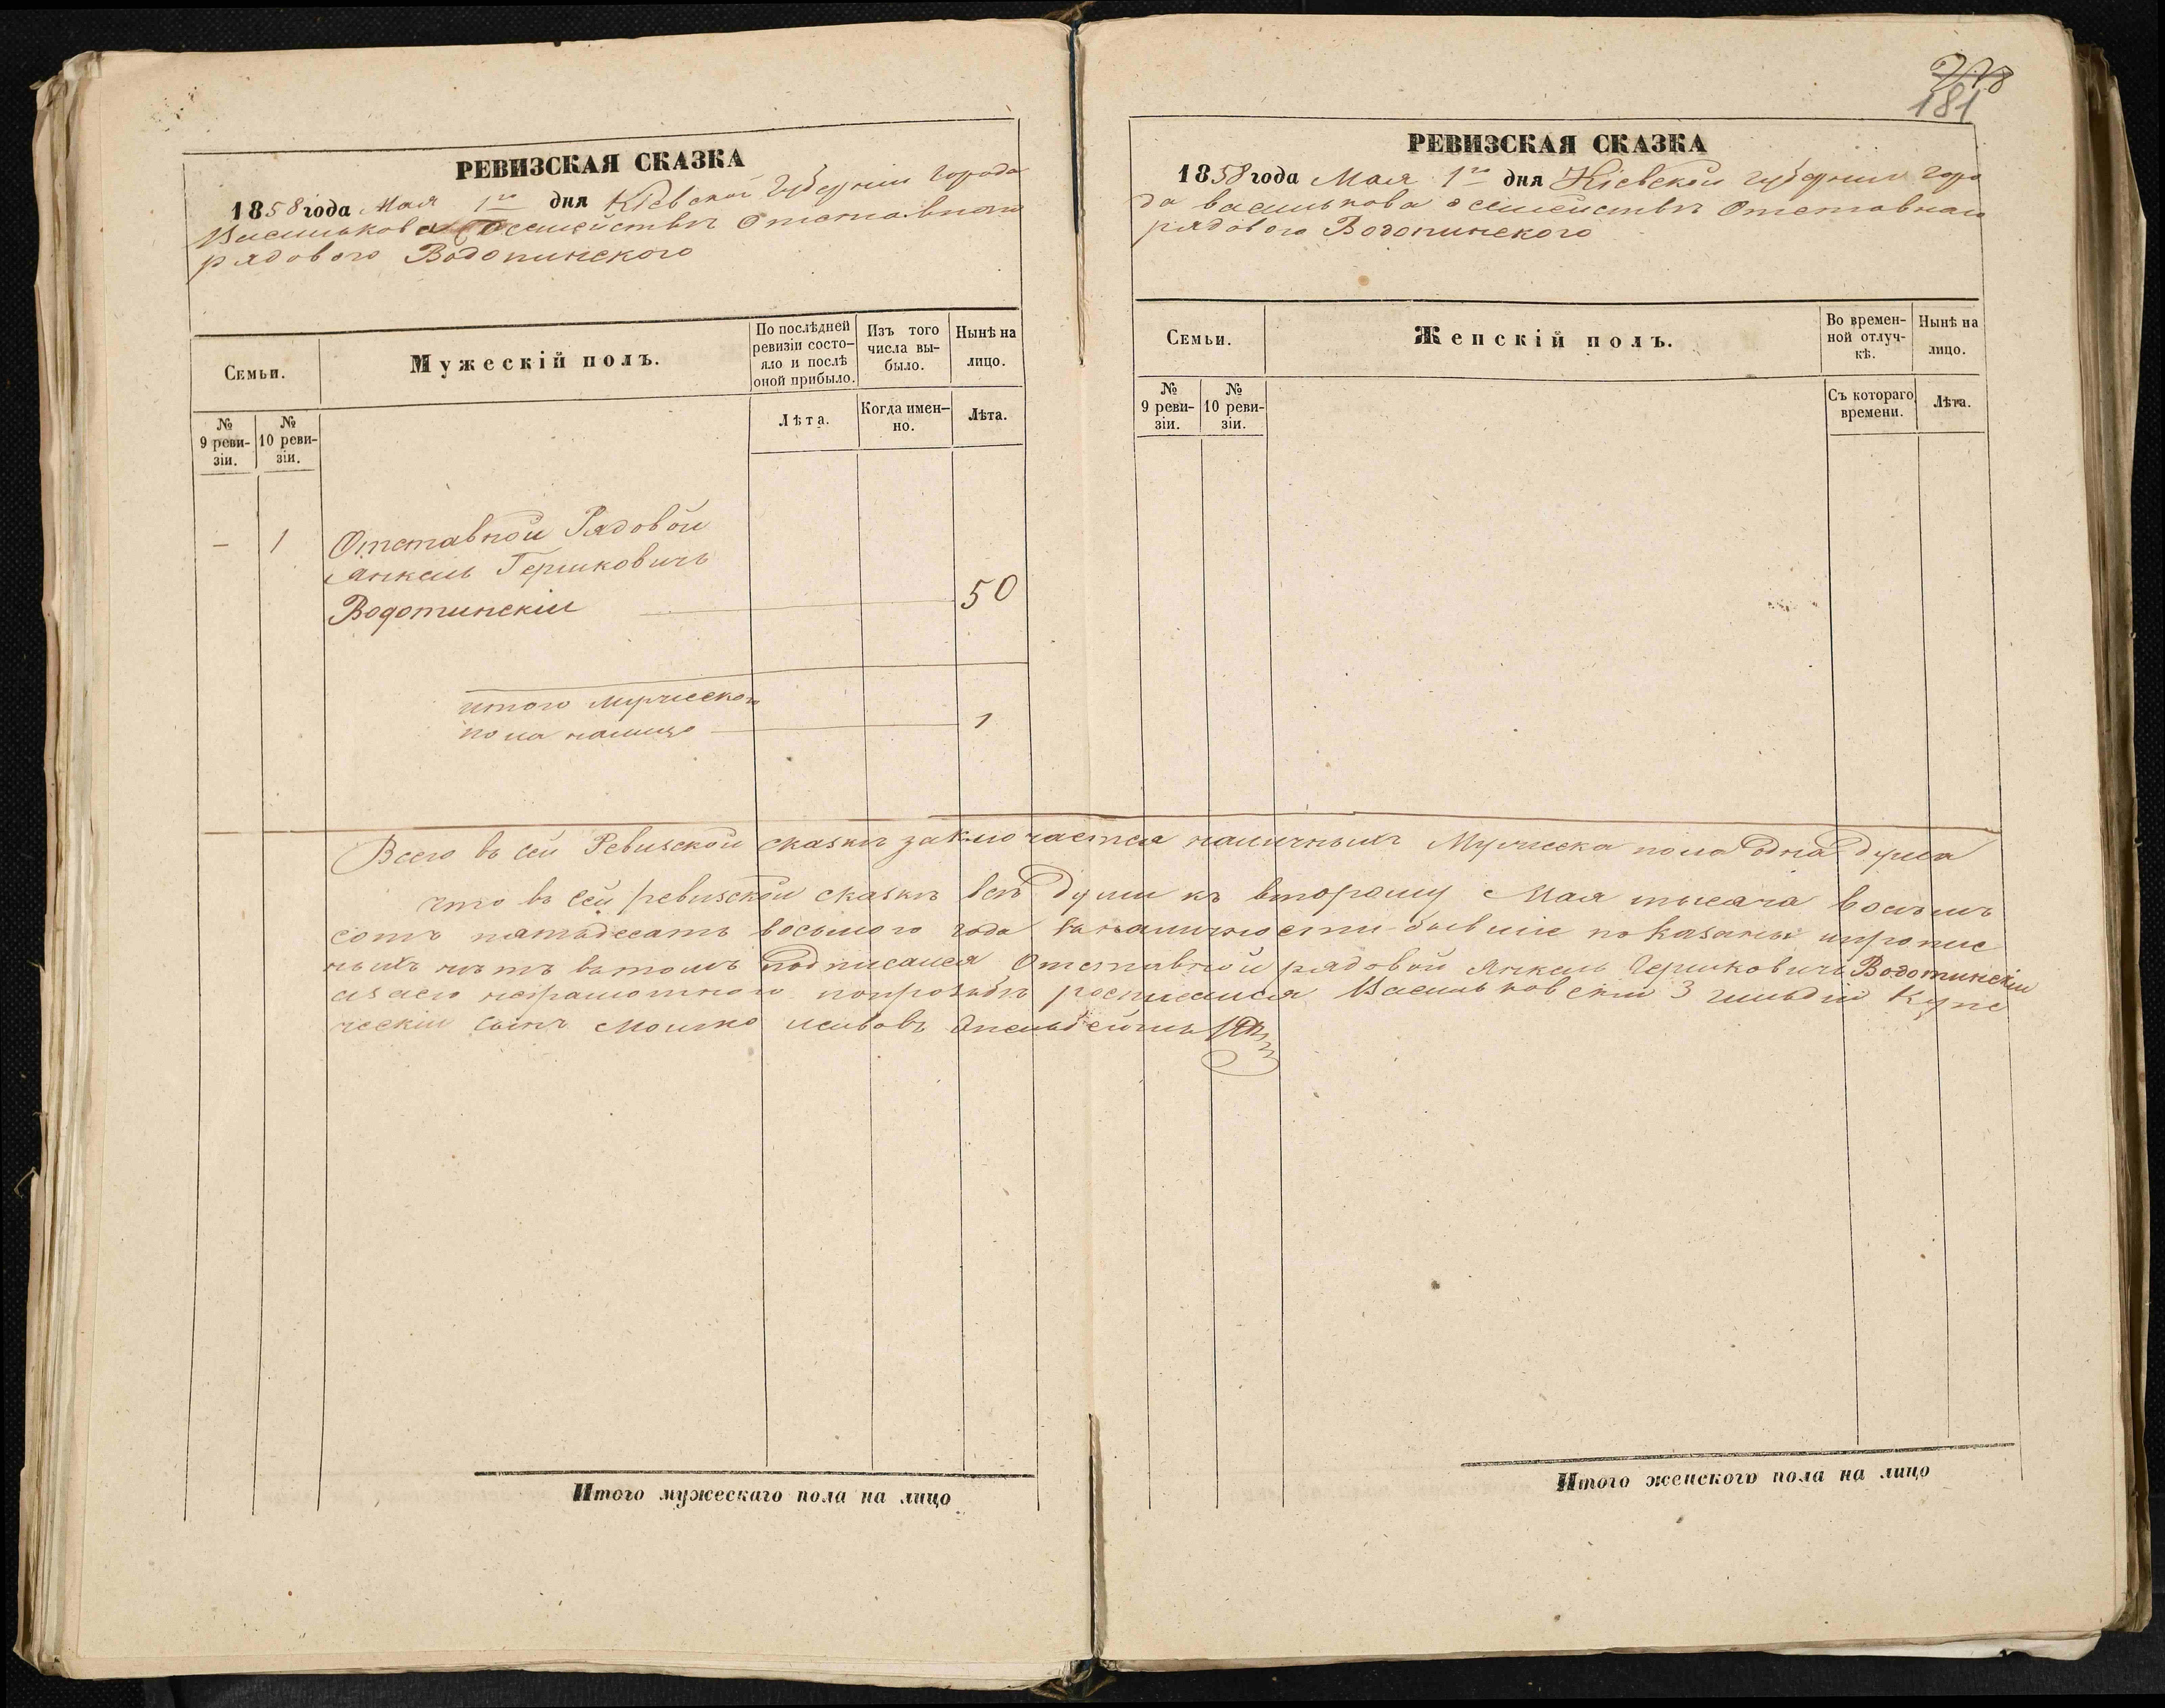 РЕВИЗСКАЯ СКАЗКА
1858 года Мая 1го дня Кіевской Губерніи города
Василькова о семействѣ Отставного
рядового Водопинского
Семьи.
Мужескій полъ.
По послѣдней ревизіи состояло и послѣ оной прибыло.
Изъ того числа выбыло.
Нынѣ на лицо.
№ 9 ревизіи.
№ 10 ревизіи.
Лѣта.
Когда именно.
Лѣта.
— 1 Отставной Рядовой
Янкель Гершковичъ
Водотинскій 50
итого Мужеского
пола налицо 1
Итого мужескаго пола на лицо
181
РЕВИЗСКАЯ СКАЗКА
1858 года Мая 1го дня Кіевской губерніи горо
да василькова о семействѣ Отставнаго
рядового Водопинского
Семьи.
Женскій полъ.
Во временной отлучкѣ.
Нынѣ на лицо.
№ 9 ревизіи.
№ 10 ревизіи.
Съ котораго времени.
Лѣта.
Всего въ сей Ревизской сказкѣ заключается наличныхъ Мужеска пола одна душа
что въ сей ревизской сказкѣ всѣ души къ второму Мая тысяча восемь
сотъ пятьдесятъ восьмого года въ наличности бывшіе показаны и пропис
ныхъ нѣтъ въ томъ подписался Отставной рядовой Янкель Гершковичъ Водотинскій
а за его неграмотного по прозьбѣ росписался Васильковскій 3 гильдіи Купе
ческій сынъ Мошко
Итого женскаго пола на лицо